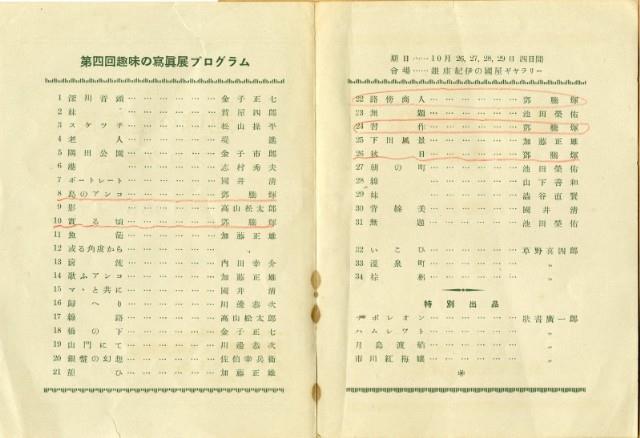 第四回趣味の寫眞展プログラム
1 深川音頭 金子正七
2 妹 菅屋四郎
3 スケッチ 松山操平
4 老人 堤進
5 隅田公園 金子市郎
6 港 志村秀夫
7 ポートレート 國井清
8 島のアンコ 鄧騰輝
9 影 高山松太郎
10 實る頃 鄧騰輝
11 魚 加藤正雄
12 或る角度から
13 流 内田幸介
14 歌ふアンコ 加藤正雄
15 マヽと共に 國井清
16 歸へり 川邊恭次
17 線路 高山松太郎
18 橋の下 金子正七
19 山門にて 川邊恭次
20 銀盤の幻想 佐伯幸兵衛
21 ひ 加藤正雄
期日……10月26,27,28,29日四日間
會場……銀座紀伊の國屋ギャラリー
22 路傍商人 鄧騰輝
23 無題 池田榮佑
24 習作 鄧騰輝
25 下田風景 加藤正雄
26 秋日 鄧騰輝
27 朝の町 池田榮佑
28 山下善和
29 妹 澁谷直賢
30 菅絲美 國井清
31 無題 池田榮佑
32 いこひ 草野喜四郎
33 温泉町 〃
34 〃
特別出品
ナポレオン 歌書廣一郎
ハムレット 〃
月島渡船 〃
市川紅梅孃 〃